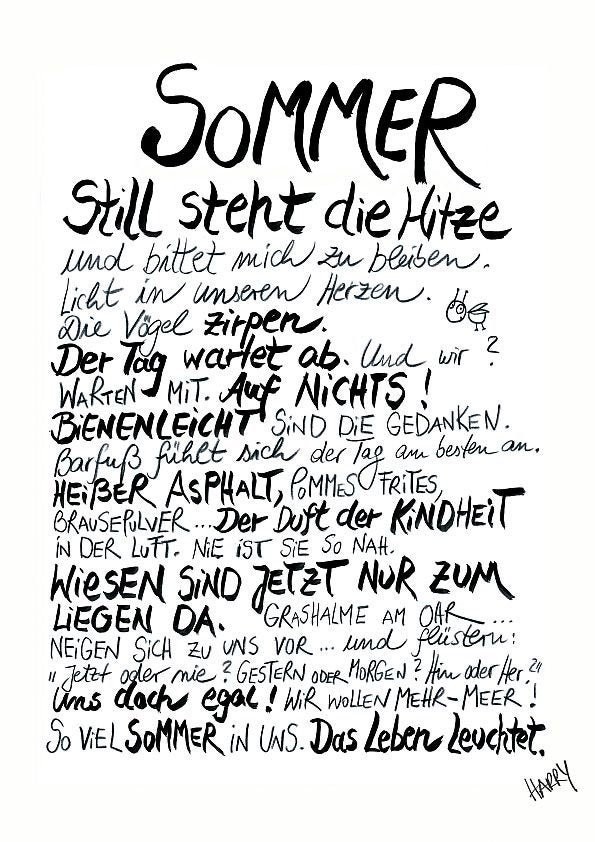 SOMMER
Still steht die Hitze
und bittet mich zu bleiben.
Licht in unseren Herzen.
Die Vögel zirpen.
Der Tag wartet ab. Und wir ?
WARTEN MIT. Auf NICHTS !
BIENENLEICHT SIND DIE GEDANKEN.
Barfuß fühlt sich der Tag am besten an.
HEIßER ASPHALT, POMMES FRITES,
BRAUSEPULVER... Der Duft der KINDHEIT
IN DER LUFT. NIE IST SIE SO NAH.
WIESEN SIND JETZT NUR ZUM
LIEGEN DA. GRASHALME AM OHR ...
NEIGEN SICH ZU UNS VOR ... und flüstern:
„Jetzt oder nie? GESTERN ODER MORGEN? Hin oder Her?"
Uns doch egal! WIR WOLLEN MEHR-MEER!
SO VIEL SOMMER IN UNS. Das Leben Leuchtet.
HARRY